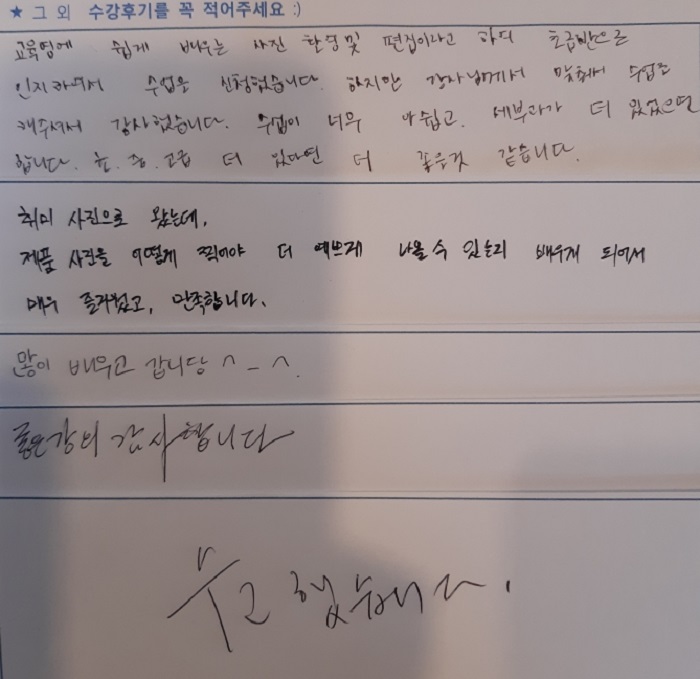 ★ 그 외 수강후기를 꼭 적어주세요 :)
교육명에 쉽게 배우는 사진 촬영및 편집이라고 하여 초급반으로
인지하여서 수업을 신청했습니다. 하지만 강사님께서 맞춰서 수업도
해주셔서 감사했습니다. 수업이 너무 아쉽고. 세부과가 더 있었으면
합니다. 초. 중. 고급 더 있다면 더 좋을것 같습니다.
취미 사진으로 왔는데,
제품 사진을 어떻게 찍어야 더 예쁘게 나올 수 있는지 배우게 되어서
매우 즐거웠고, 만족합니다.
많이 배우고 갑니당 ^-^.
좋은강의 감사합니다
수고했습니다.